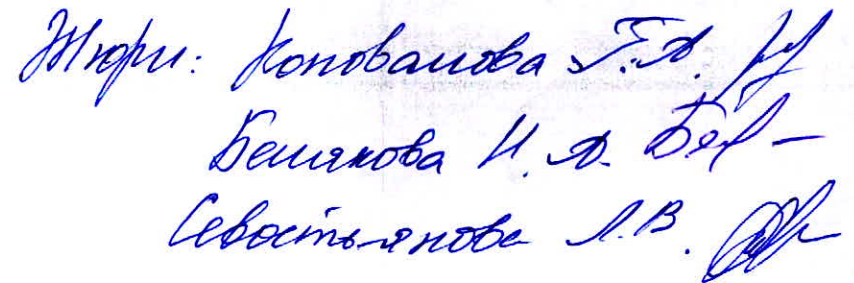 Жюри: Коновалова Г.А.
Белякова Н.А.
Севостьянова Л.В.